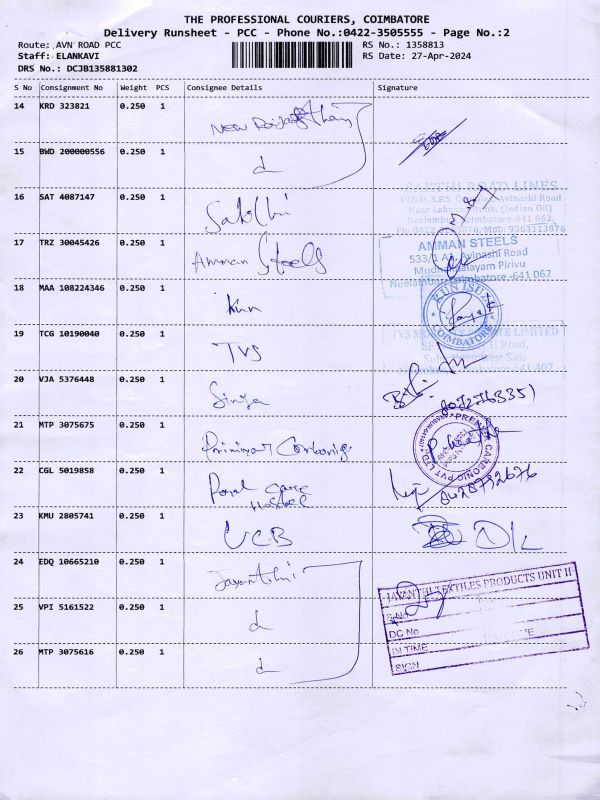 THE PROFESSIONAL COURIERS, COIMBATORE
Delivery Runsheet - PCC - Phone No.:0422-3505555 - Page No.:2
Route: AVN ROAD PCC RS No.: 1358813
Staff: ELANKAVI RS Date: 27-Apr-2024
DRS No.: DCJB135881302
S No Consignment No Weight PCS Consignee Details Signature
14 KRD 323821 0.250 1 New
15 BWD 200000556 0.250 1 d
SAKTHI ROAD LINES
16 SAT 4087147 0.250 1 Sakthi
Avinashi Road
(Indian Oil)
Coimbatore-641 662.
9363113876
17 TRZ 30045426 0.250 1 Amman Steels
AMMAN STEELS
533/1 A1, Avinashi Road
Pirivu
Coimbatore -641 062
18 MAA 108224346 0.250 1 Kun
KUN ISUZU
COIMBATORE
19 TCG 10190040 0.250 1 TVS
TVS LIMITED
Road,
West Side
20 VJA 5376448 0.250 1
21 MTP 3075675 0.250 1
22 CGL 5019858 0.250 1 Royal care
Hostel
23 KMU 2805741 0.250 1 UCB
24 EDQ 10665210 0.250 1 Jayanthi
JAYANTHI TEXTILES PRODUCTS UNIT II
25 VPI 5161522 0.250 1 d
S.No
DC No
26 MTP 3075616 0.250 1 d
IN TIME
SIGN